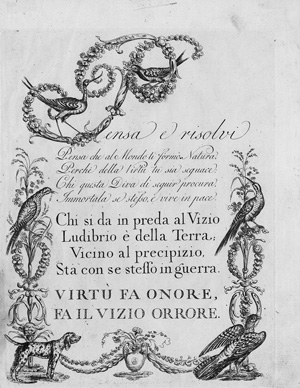 Pensa e risolvi
Pensa che al Mondo ti formò Natura
Perchè della Virtù tu sia seguace
Chi questa Diva di seguir procura
Immortala se stesso, e vive in pace
Chi si da in preda al Vizio
Ludibrio è della Terra,
Vicino al precipizio
Stà con se stesso in guerra.
VIRTÙ FA ONORE,
FA IL VIZIO ORRORE.